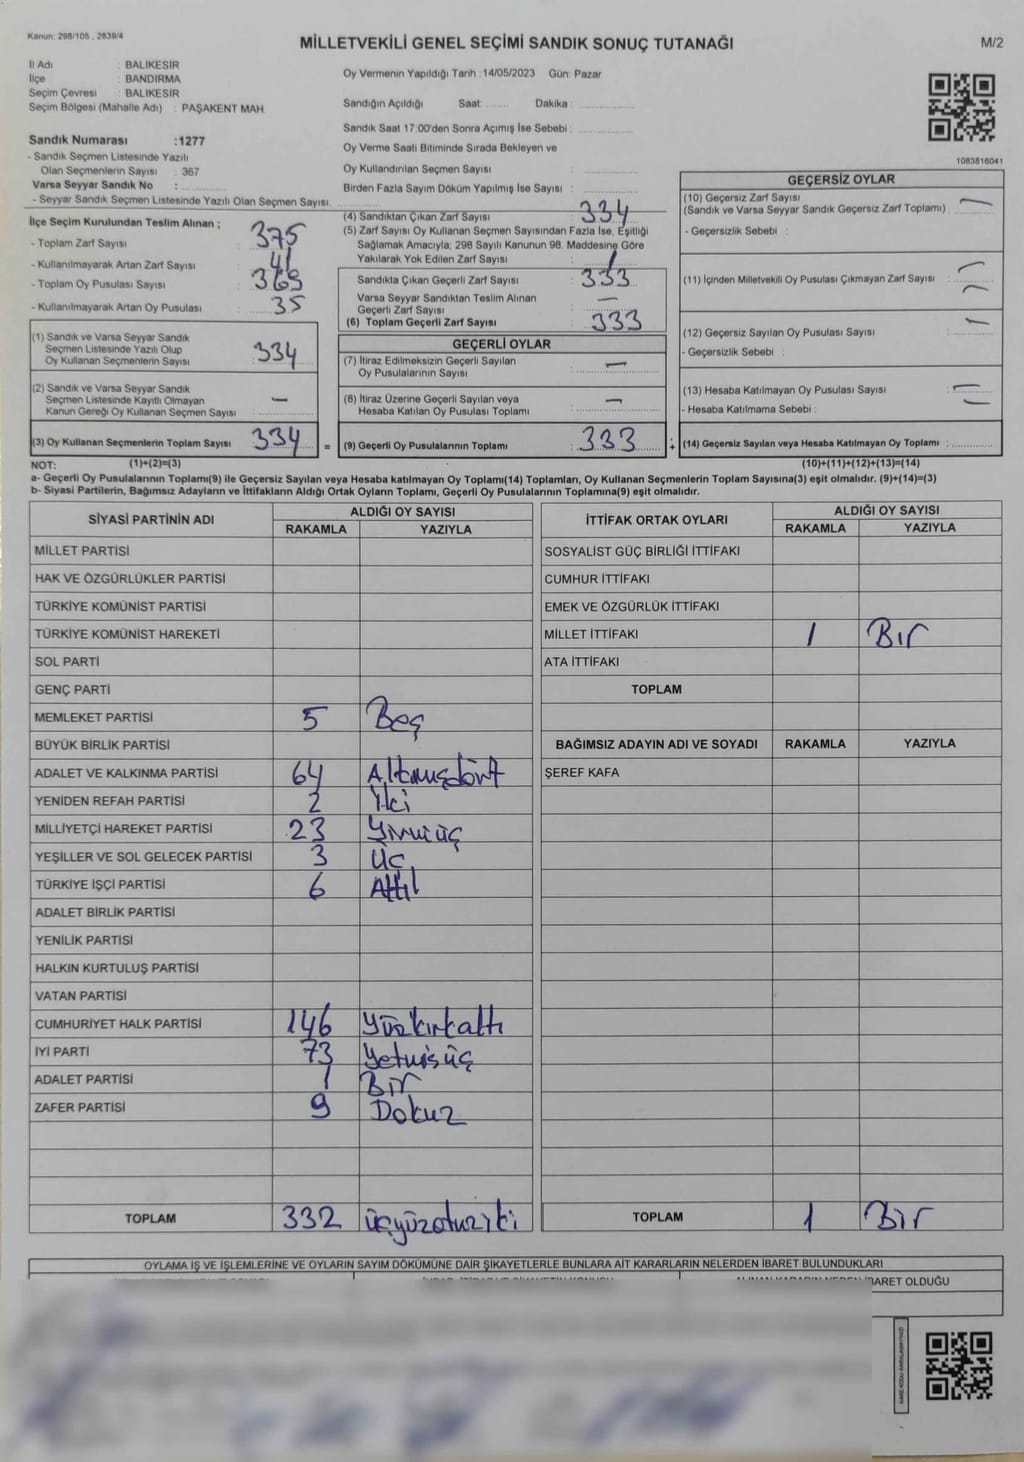 Kanun: 298/105 , 2839/4
MİLLETVEKİLİ GENEL SEÇİMİ SANDIK SONUÇ TUTANAĞI
M/2
İl Adı : BALIKESİR
İlçe : BANDIRMA
Seçim Çevresi : BALIKESİR
Seçim Bölgesi (Mahalle Adı) : PAŞAKENT MAH
Sandık Numarası :1277
- Sandık Seçmen Listesinde Yazılı
Olan Seçmenlerin Sayısı : 367
Varsa Seyyar Sandık No :
- Seyyar Sandık Seçmen Listesinde Yazılı Olan Seçmen Sayısı:
Oy Vermenin Yapıldığı Tarih :14/05/2023 Gün: Pazar
Sandığın Açıldığı Saat: Dakika :
Sandık Saat 17:00'den Sonra Açımış İse Sebebi :
Oy Verme Saati Bitiminde Sırada Bekleyen ve
Oy Kullandırılan Seçmen Sayısı :
Birden Fazla Sayım Döküm Yapılmış İse Sayısı :
1083816041
İlçe Seçim Kurulundan Teslim Alınan ;
- Toplam Zarf Sayısı : 375
- Kullanılmayarak Artan Zarf Sayısı : 41
- Toplam Oy Pusulası Sayısı : 369
- Kullanılmayarak Artan Oy Pusulası : 35
(1) Sandık ve Varsa Seyyar Sandık
Seçmen Listesinde Yazılı Olup
Oy Kullanan Seçmenlerin Sayısı : 334
(2) Sandık ve Varsa Seyyar Sandık
Seçmen Listesinde Kayıtlı Olmayan
Kanun Gereği Oy Kullanan Seçmen Sayısı : —
(3) Oy Kullanan Seçmenlerin Toplam Sayısı 334 =
(4) Sandıktan Çıkan Zarf Sayısı : 334
(5) Zarf Sayısı Oy Kullanan Seçmen Sayısından Fazla İse, Eşitliği
Sağlamak Amacıyla, 298 Sayılı Kanunun 98. Maddesine Göre
Yakılarak Yok Edilen Zarf Sayısı : /
Sandıkta Çıkan Geçerli Zarf Sayısı : 333
Varsa Seyyar Sandıktan Teslim Alınan
Geçerli Zarf Sayısı : —
(6) Toplam Geçerli Zarf Sayısı : 333
GEÇERLİ OYLAR
(7) İtiraz Edilmeksizin Geçerli Sayılan
Oy Pusulalarının Sayısı : —
(8) İtiraz Üzerine Geçerli Sayılan veya
Hesaba Katılan Oy Pusulası Toplamı : —
(9) Geçerli Oy Pusulalarının Toplamı : 333 +
GEÇERSİZ OYLAR
(10) Geçersiz Zarf Sayısı
(Sandık ve Varsa Seyyar Sandık Geçersiz Zarf Toplamı) : —
- Geçersizlik Sebebi :
(11) İçinden Milletvekili Oy Pusulası Çıkmayan Zarf Sayısı : —
(12) Geçersiz Sayılan Oy Pusulası Sayısı : —
- Geçersizlik Sebebi :
(13) Hesaba Katılmayan Oy Pusulası Sayısı : —
- Hesaba Katılmama Sebebi :
(14) Geçersiz Sayılan veya Hesaba Katılmayan Oy Toplamı :
NOT: (1)+(2)=(3) (10)+(11)+(12)+(13)=(14)
a- Geçerli Oy Pusulalarının Toplamı(9) ile Geçersiz Sayılan veya Hesaba katılmayan Oy Toplamı(14) Toplamları, Oy Kullanan Seçmenlerin Toplam Sayısına(3) eşit olmalıdır. (9)+(14)=(3)
b- Siyasi Partilerin, Bağımsız Adayların ve İttifakların Aldığı Ortak Oyların Toplamı, Geçerli Oy Pusulalarının Toplamına(9) eşit olmalıdır.
SİYASİ PARTİNİN ADI ALDIĞI OY SAYISI
RAKAMLA YAZIYLA
MİLLET PARTİSİ
HAK VE ÖZGÜRLÜKLER PARTİSİ
TÜRKİYE KOMÜNİST PARTİSİ
TÜRKİYE KOMÜNİST HAREKETİ
SOL PARTİ
GENÇ PARTİ
MEMLEKET PARTİSİ 5 Beş
BÜYÜK BİRLİK PARTİSİ
ADALET VE KALKINMA PARTİSİ 64 Altmışdört
YENİDEN REFAH PARTİSİ 2 İki
MİLLİYETÇİ HAREKET PARTİSİ 23 Yirmiüç
YEŞİLLER VE SOL GELECEK PARTİSİ 3 Üç
TÜRKİYE İŞÇİ PARTİSİ 6 Altı
ADALET BİRLİK PARTİSİ
YENİLİK PARTİSİ
HALKIN KURTULUŞ PARTİSİ
VATAN PARTİSİ
CUMHURİYET HALK PARTİSİ 146 Yüzkırkaltı
İYİ PARTİ 73 Yetmişüç
ADALET PARTİSİ 1 Bir
ZAFER PARTİSİ 9 Dokuz
TOPLAM 332 üçyüzotuziki
İTTİFAK ORTAK OYLARI ALDIĞI OY SAYISI
RAKAMLA YAZIYLA
SOSYALİST GÜÇ BİRLİĞİ İTTİFAKI
CUMHUR İTTİFAKI
EMEK VE ÖZGÜRLÜK İTTİFAKI
MİLLET İTTİFAKI 1 Bir
ATA İTTİFAKI
TOPLAM
BAĞIMSIZ ADAYIN ADI VE SOYADI RAKAMLA YAZIYLA
ŞEREF KAFA
TOPLAM 1 Bir
OYLAMA İŞ VE İŞLEMLERİNE VE OYLARIN SAYIM DÖKÜMÜNE DAİR ŞİKAYETLERLE BUNLARA AİT KARARLARIN NELERDEN İBARET BULUNDUKLARI
OLDUĞU